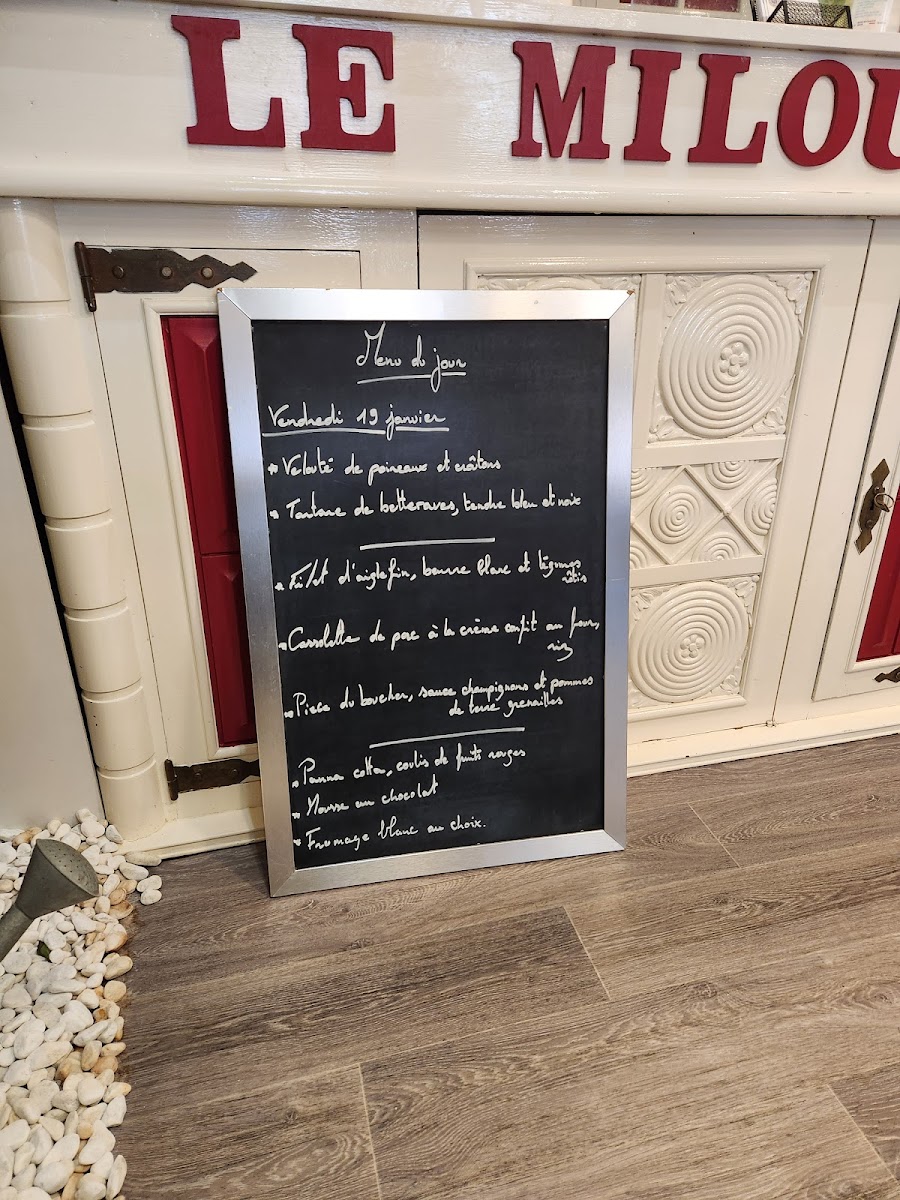 LE MILOU
Menu du jour
Vendredi 19 janvier
* Velouté de poireaux et croûtons
* Tartare de betteraves, tendre bleu et noix
* Filet d'aiglefin, beurre blanc et légumes
rôtis
* Cassolette de porc à la crème confit au four,
riz
* Pièce du boucher, sauce champignons et pommes
de terre grenailles
* Panna cotta, coulis de fruits rouges
* Mousse au chocolat
* Fromage blanc au choix.